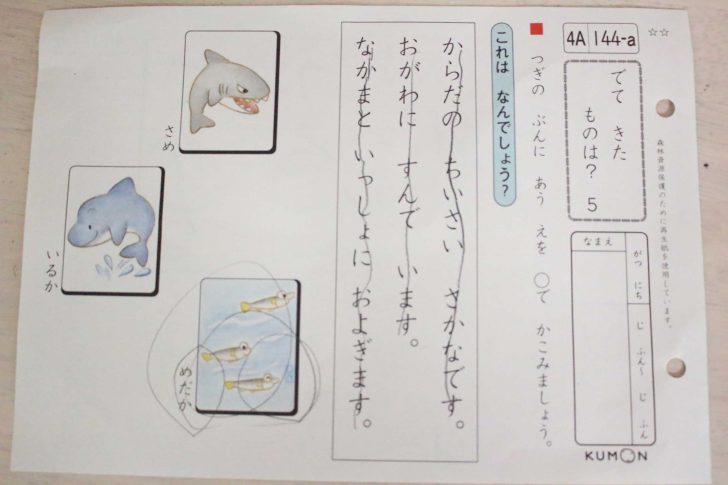 ☆☆
4A 144-a
でて きた
ものは? 5
なまえ
がつ にち
じ ふん〜 じ ふん
KUMON
森林資源保護のために再生紙を使用しています。
■ つぎの ぶんに あう えを ○で かこみましょう。
これは なんでしょう?
からだの ちいさい さかなです。
おがわに すんで います。
なかまと いっしょに およぎます。
さめ
いるか
めだか